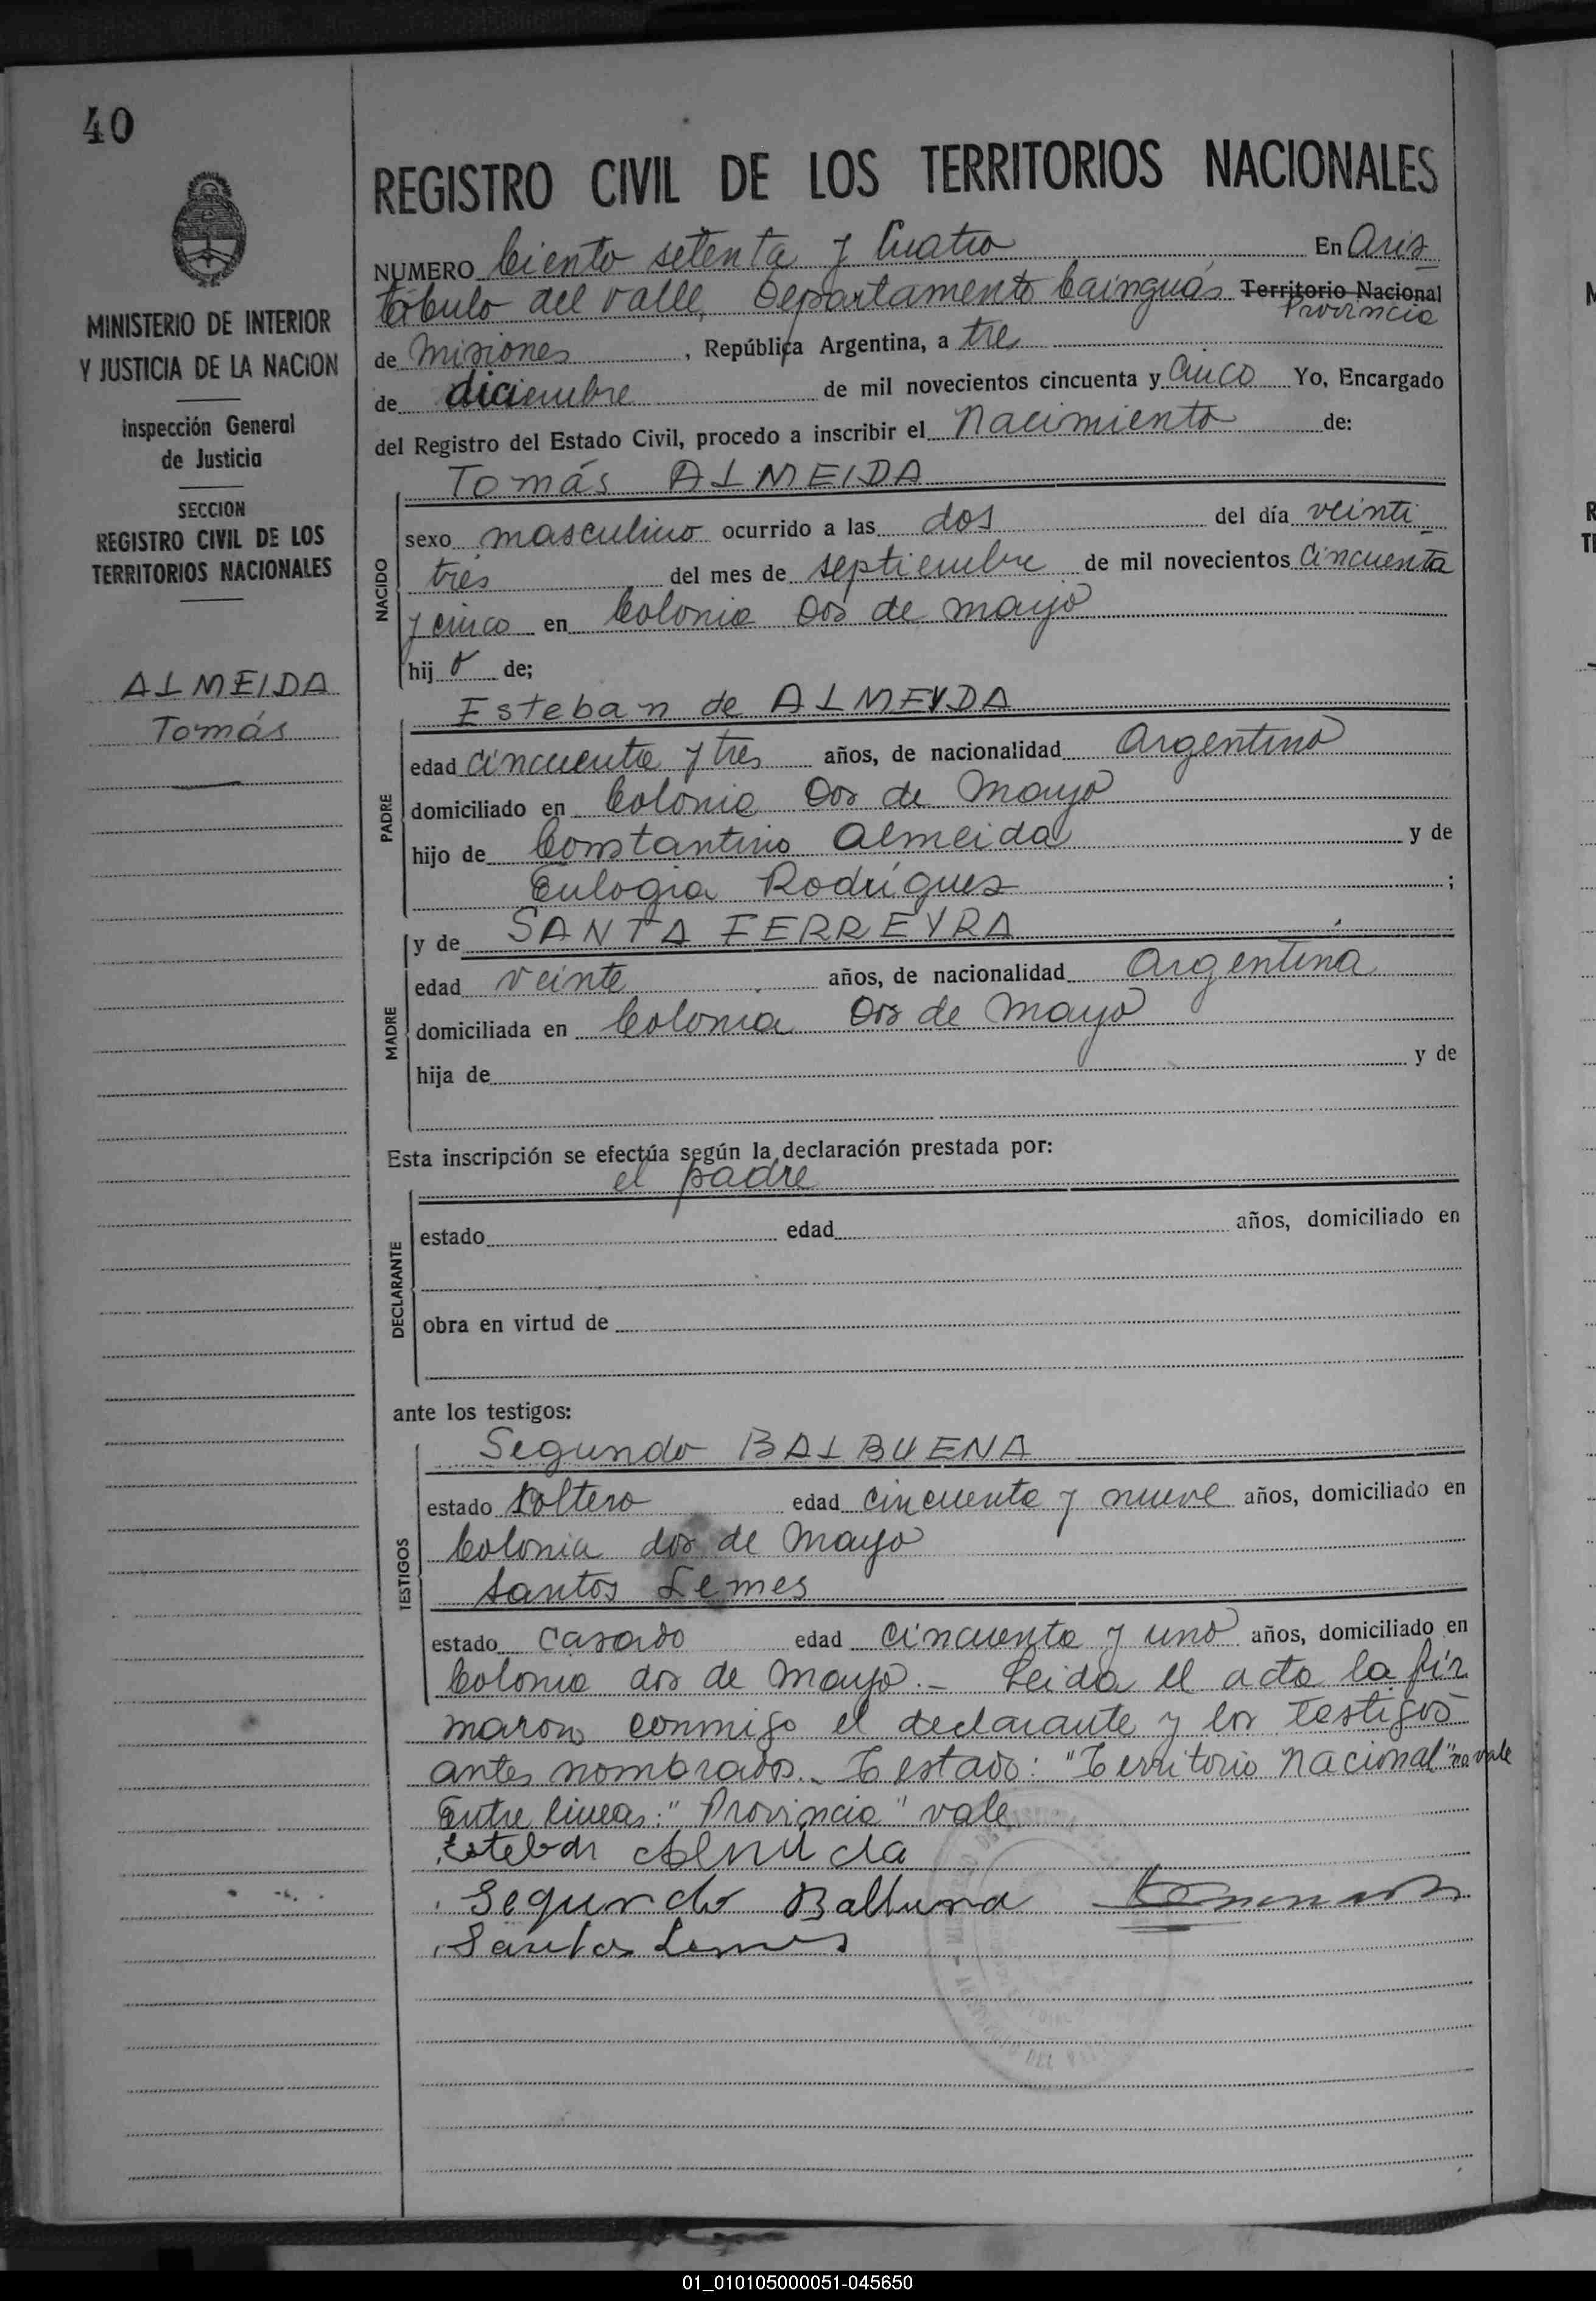 40
MINISTERIO DE INTERIOR
Y JUSTICIA DE LA NACION
Inspección General
de Justicia
SECCION
REGISTRO CIVIL DE LOS
TERRITORIOS NACIONALES
ALMEIDA
Tomás
REGISTRO CIVIL DE LOS TERRITORIOS NACIONALES
NUMERO Ciento setenta y Cuatro En Aris
tóbulo del valle, Departamento Cainguás Territorio Nacional
Provincia
de Misiones, República Argentina, a tres
de diciembre de mil novecientos cincuenta y cinco Yo, Encargado
del Registro del Estado Civil, procedo a inscribir el Nacimiento de:
Tomás ALMEIDA
NACIDO
sexo masculino ocurrido a las dos del día veinti
trés del mes de septiembre de mil novecientos cincuenta
y cinco en Colonia Dos de mayo
hijo de;
Esteban de ALMEYDA
PADRE
edad cincuenta y tres años, de nacionalidad Argentino
domiciliado en Colonia Dos de Mayo
hijo de Constantino Almeida y de
Eulogia Rodrígues ;
MADRE
y de SANTA FERREYRA
edad veinte años, de nacionalidad Argentina
domiciliada en Colonia Dos de Mayo
hija de y de
Esta inscripción se efectúa según la declaración prestada por:
el padre
DECLARANTE
estado edad años, domiciliado en
obra en virtud de
ante los testigos:
TESTIGOS
Segundo BALBUENA
estado soltero edad cincuenta y nueve años, domiciliado en
Colonia dos de Mayo
Santos Lemes
estado casado edad cincuenta y uno años, domiciliado en
Colonia dos de Mayo.- Leida el acta la fir
maron conmigo el declarante y los testigos
antes nombrados. Testado: "Territorio Nacional" no vale
Entre lineas: "Provincia" vale
Esteban Almeida
Segundo Balbuena
Santos Lemes
01_010105000051-045650